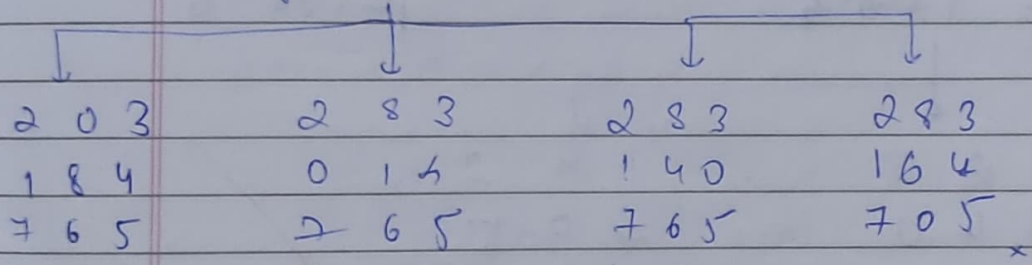 2 0 3 2 8 3 2 8 3 2 8 3
1 8 4 0 1 4 1 4 0 1 6 4
7 6 5 7 6 5 7 6 5 7 0 5
×